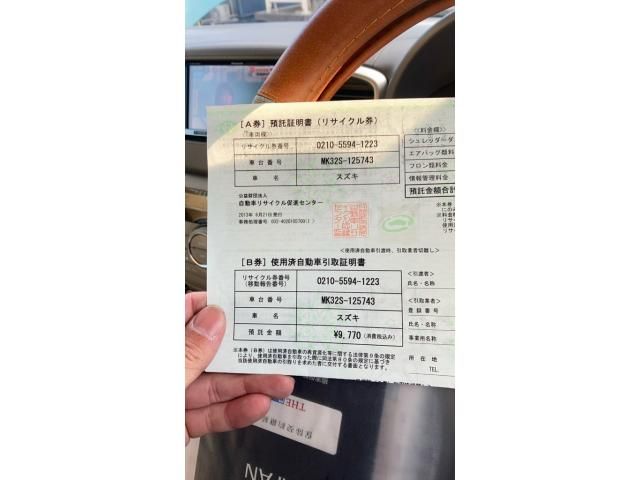 [A券] 預託証明書 (リサイクル券)
(車両欄)
リサイクル券番号 0210-5594-1223
車台番号 MK32S-125743
車名 スズキ
(料金欄)
シュレッダーダ
エアバッグ類料
フロン類料金
情報管理料金
預託金額合計
公益財団法人
自動車リサイクル促進センター
2013年 6月21日発行
<使用済自動車引渡時、引取業者切離し>
[B券] 使用済自動車引取証明書
リサイクル券番号
(移動報告番号) 0210-5594-1223
車台番号 MK32S-125743
車名 スズキ
預託金額 ¥9,770 (消費税込み)
<引渡者>
氏名・名称
<引取業者>
登録番号
氏名・名称
事業所名称
所在地
TEL.
※本券(B券)は使用済自動車の再資源化等に関する法律第9条の規定
により、使用済自動車を引取った際に同法第80条の規定に基づき
当該使用済自動車の引取りを求めた者に交付する書面となります。